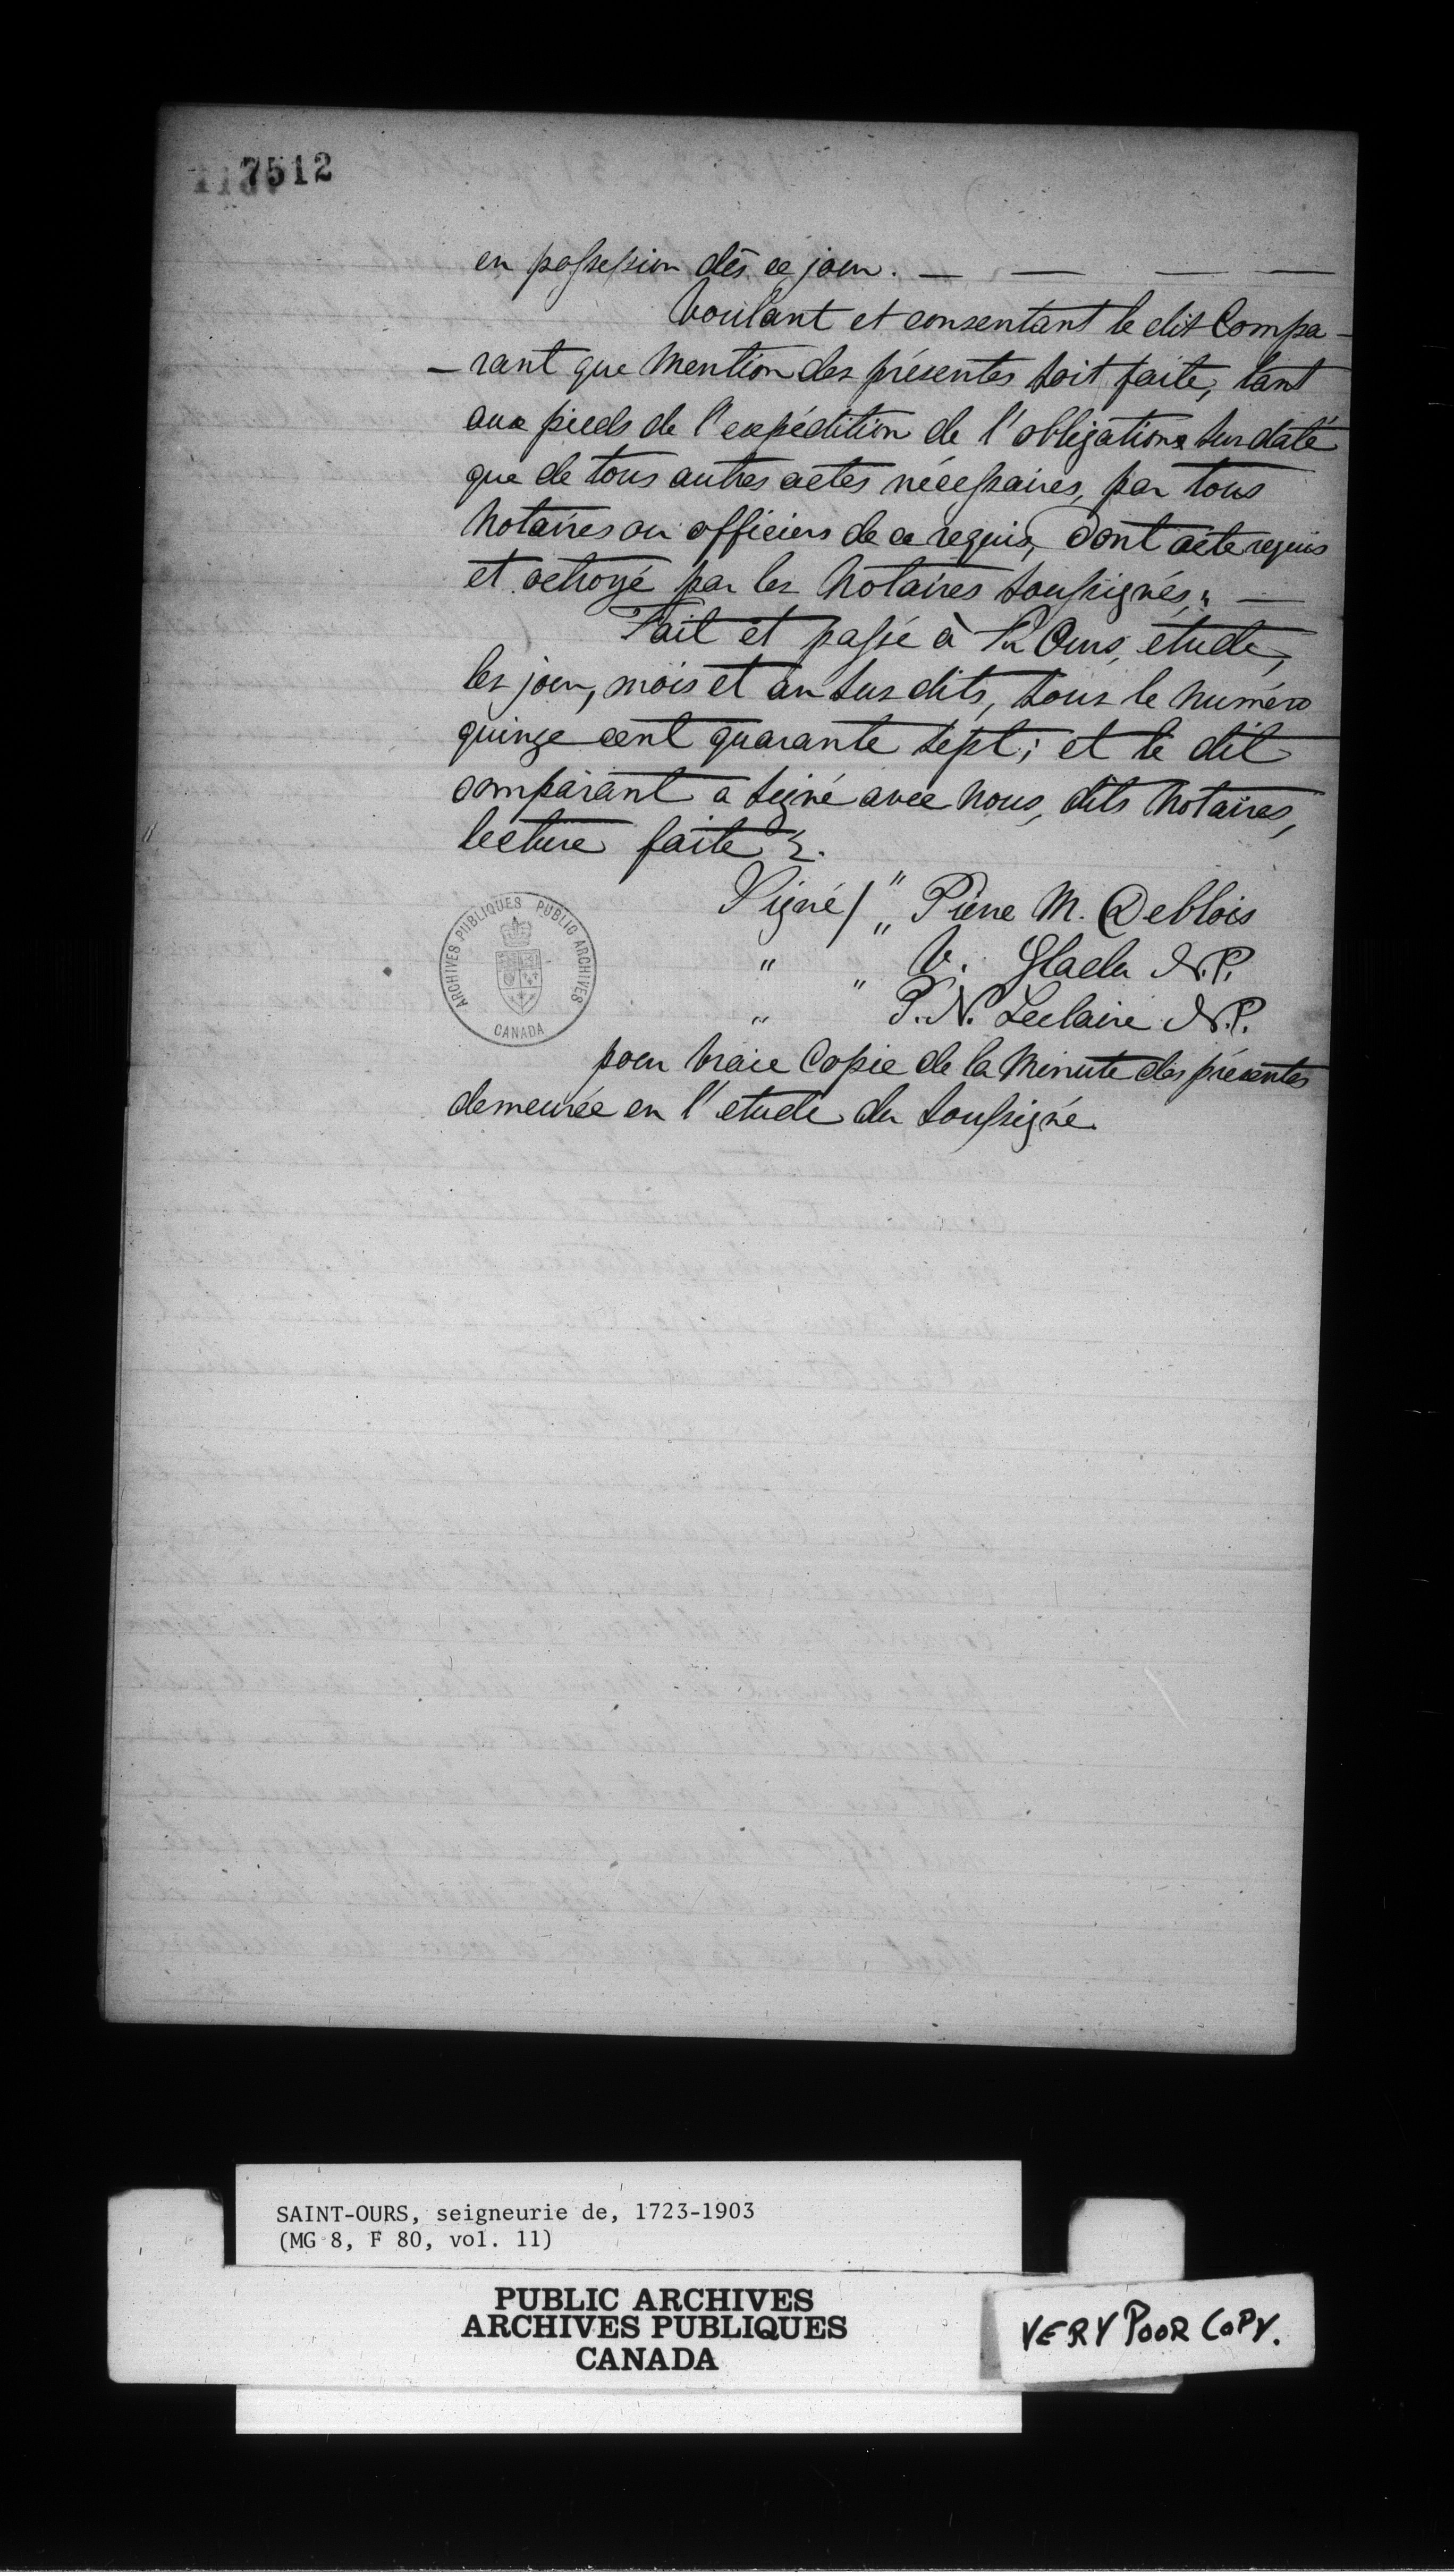 7512
en possession dès ce jour. — — — —
Voulant et consentant le dit Compa-
-rant que mention des présentes soit faite, tant
aux pieds de l'expédition de l'obligation sus daté
que de tous autres actes nécessaires, par tous
Notaires ou officiers de ce requis, Dont acte requis
et octroyé par les Notaires soussignés. —
Fait et passé à St Ours, étude,
les jour, mois et an sus dits, sous le numéro
quinze cent quarante sept; et le dit
comparant a signé avec nous, dits Notaires,
lecture faite.
Signé / " Pierre M. Deblois
" " V. Gladu N.P.
" " P.N. Leclaire N.P.
pour vraie Copie de la Minute des présentes
demeurée en l'etude du soussigné.
ARCHIVES PUBLIQUES PUBLIC ARCHIVES
CANADA
SAINT-OURS, seigneurie de, 1723-1903
(MG 8, F 80, vol. 11)
PUBLIC ARCHIVES
ARCHIVES PUBLIQUES
CANADA
VERY POOR COPY.